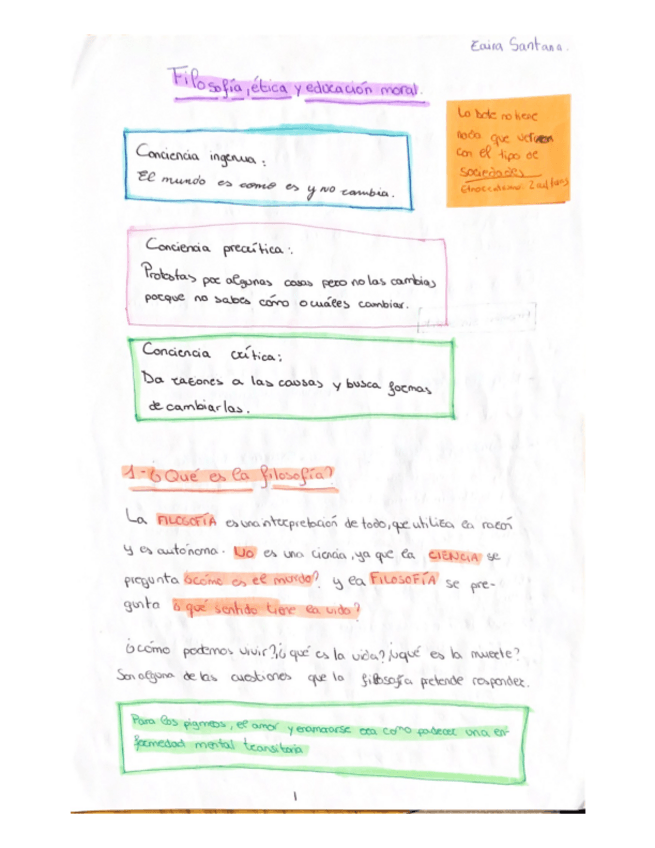 Zaira Santana.
Filosofía, ética y educación moral.
Lo bote no tiene
nada que ver
con el tipo de
sociedades
Conciencia ingenua:
El mundo es como es y no cambia.
Conciencia precrítica:
Protestas por algunas cosas pero no las cambias
porque no sabes cómo o cuáles cambiar.
Conciencia crítica:
Da razones a las causas y busca formas
de cambiarlas.
1-¿Qué es la filosofía?
La FILOSOFÍA es una interpretación de todo, que utiliza la razón
y es autónoma. No es una ciencia, ya que la CIENCIA se
pregunta ¿cómo es el mundo? y la FILOSOFÍA se pre-
gunta ¿qué sentido tiene la vida?
¿cómo podemos vivir? ¿qué es la vida? ¿qué es la muerte?
Son alguna de las cuestiones que la filosofía pretende responder.
Para los pigmeos, el amor y enamorarse era como padecer una en-
fermedad mental transitoria
1